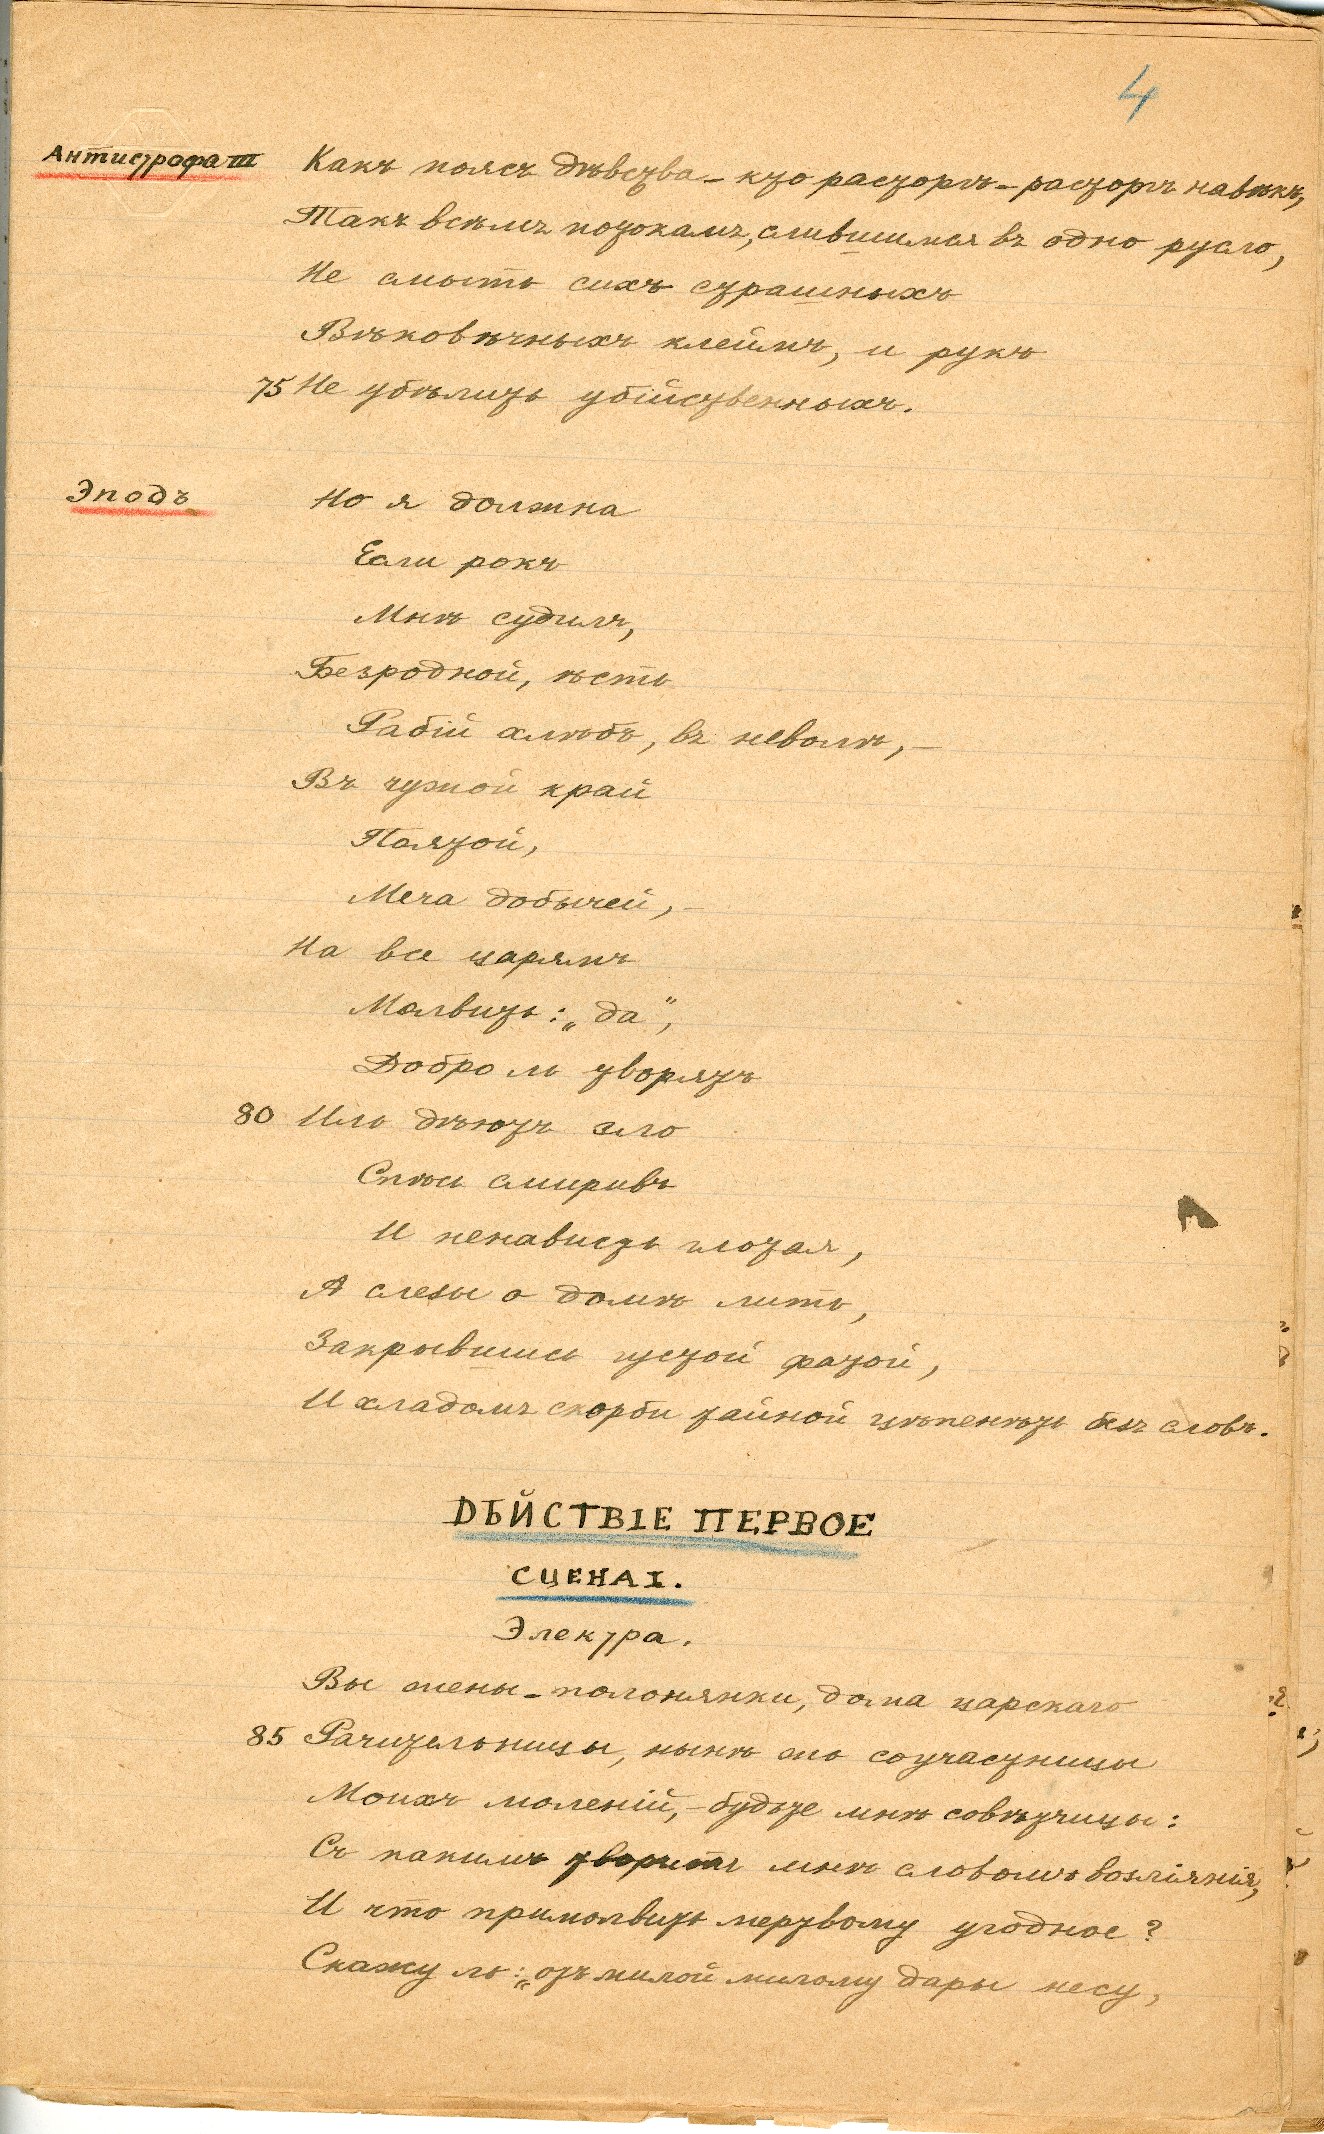 4
Антистрофа III Какъ поясъ дѣвства – кто расторгъ – расторгъ навѣкъ,
Такъ всѣмъ потокамъ, слившимся въ одно русло,
Не смыть сихъ страшныхъ
Вѣковѣчныхъ клеймъ, и рукъ
75 Не убѣлить убійственныхъ.
Эподъ Но я должна
Если рокъ
Мнѣ судилъ,
Безродной, ѣсть
Рабій хлѣбъ, въ неволѣ, –
Въ чужой край
Полятой,
Меча добычей, –
На все царямъ
Молвить: „да“,
Добро ль творятъ
80 Иль дѣютъ зло
Спѣсь смиривъ
И ненависть глотая,
А слезы о домѣ лить,
Закрывшись густой фатой,
И хладомъ скорби тайной цѣпенѣть безъ словъ.
ДѢЙСТВІЕ ПЕРВОЕ
СЦЕНА I.
Электра.
Вы жены-полонянки, дома царскаго
85 Рачительницы, нынѣ жъ соучастницы
Моихъ моленій, – будьте мнѣ совѣтчицы:
Съ какимъ творить мнѣ словомъ возліянія,
И что примолвить мертвому угодное?
Скажу ль: „отъ милой милому дары несу,